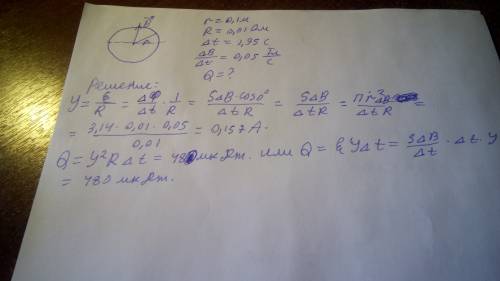 B
r
r = 0,1м
R = 0,01 Ом
Δt = 1,95 с
ΔB/Δt = 0,05 Тл/с
Q = ?
Решение:
Y = Ɛ/R = ΔФ/Δt · 1/R = SΔB·cos0°/ΔtR = SΔB/ΔtR = Пr²ΔB/ΔtR =
= 3,14·0,01·0,05/0,01 = 0,157 А.
Q = Y²RΔt = 480 мкДж. или Q = ƐYΔt = SΔB/Δt · Δt · Y
= 480 мкДж.